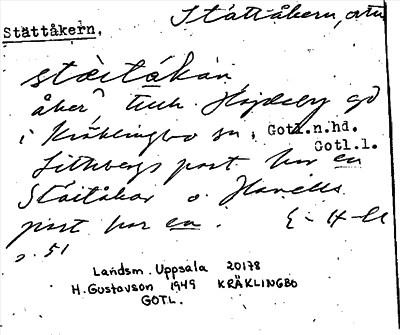 Stättåkern,
Stättåkern,
stäitåkan
åker till Hajdeby gd
i Kräklingbo sn, Gotl.n.hd.
Gotl.l.
Lithbergs part har en
Stäitåkar o. Havells
part har en.
s. 51
Landsm. Uppsala 20178
H. Gustavson 1949 KRÄKLINGBO
GOTL.